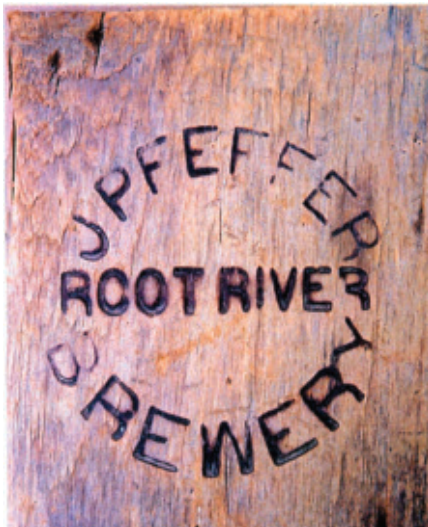 J PFEFFER
ROOT RIVER
BREWERY